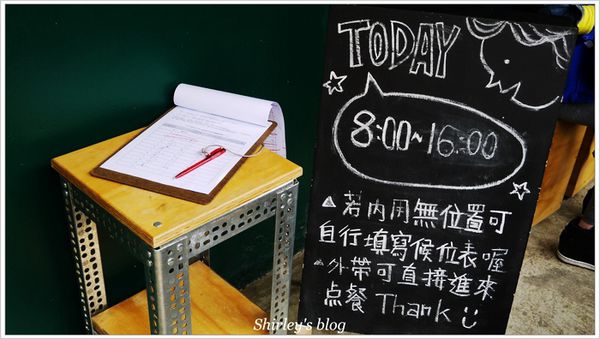 TODAY
8:00~16:00
▲若內用無位置可
自行填寫候位表喔
▲外帶可直接進來
点餐 Thank
Shirley's blog